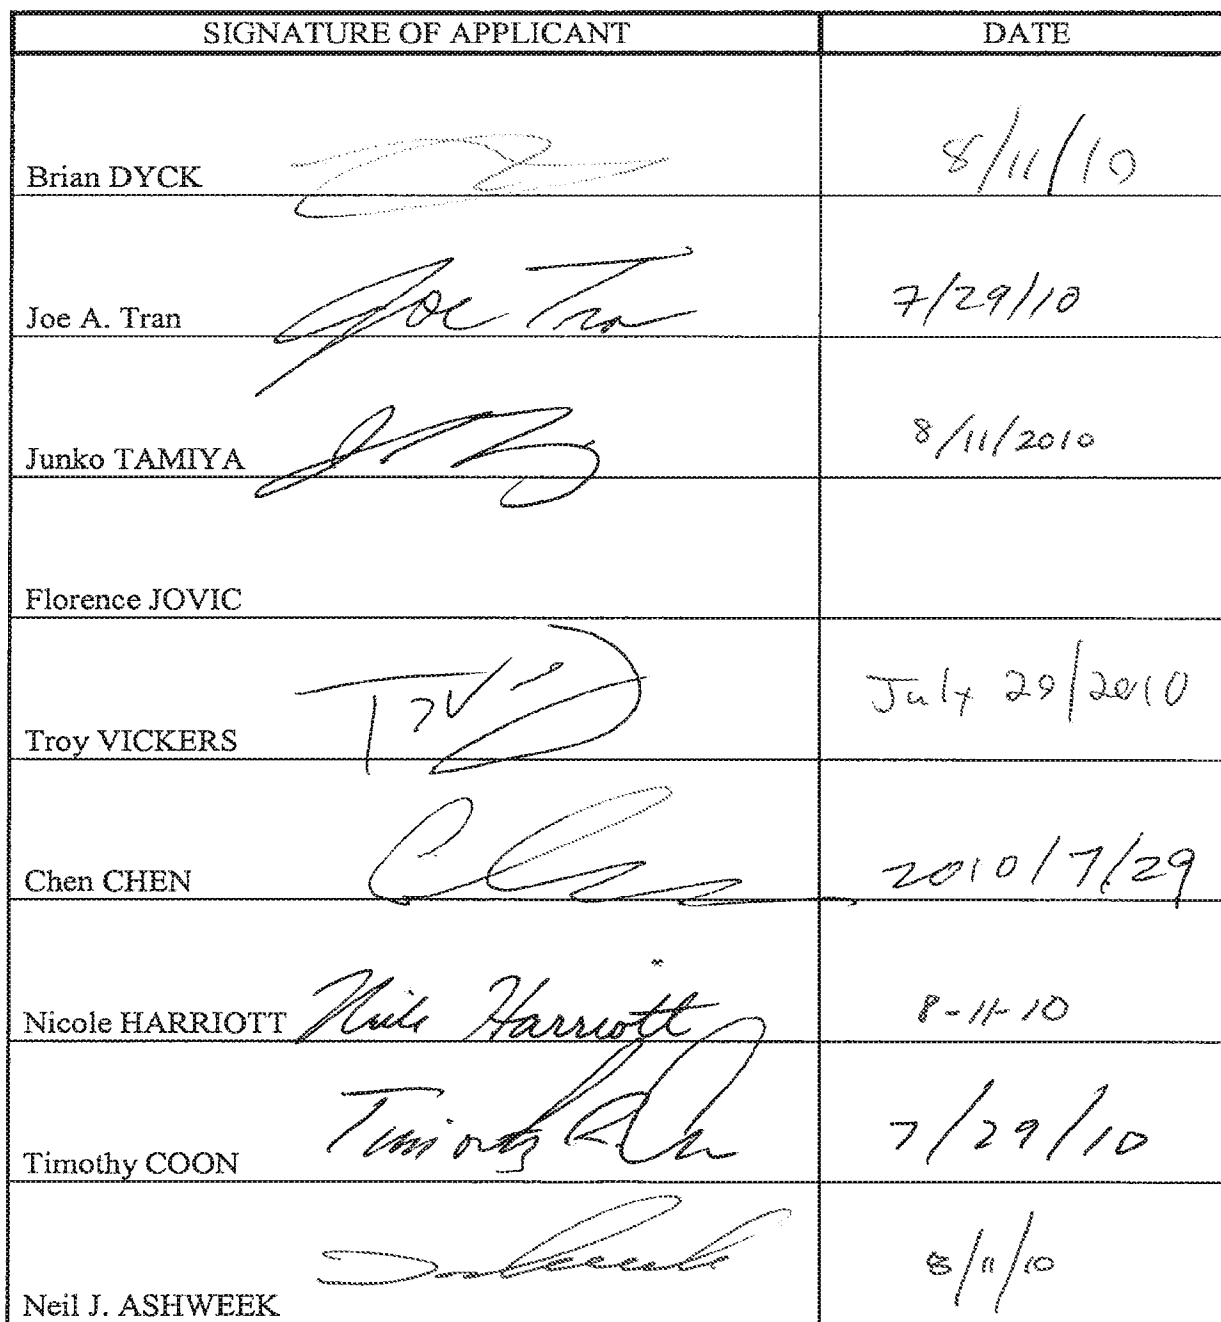 SIGNATURE OF APPLICANT DATE
Brian DYCK 8/11/10
Joe A. Tran Joe Tran 7/29/10
Junko TAMIYA 8/11/2010
Florence JOVIC
Troy VICKERS July 29/2010
Chen CHEN 2010/7/29
Nicole HARRIOTT Nicole Harriott 8-11-10
Timothy COON Timothy 7/29/10
Neil J. ASHWEEK 8/11/10